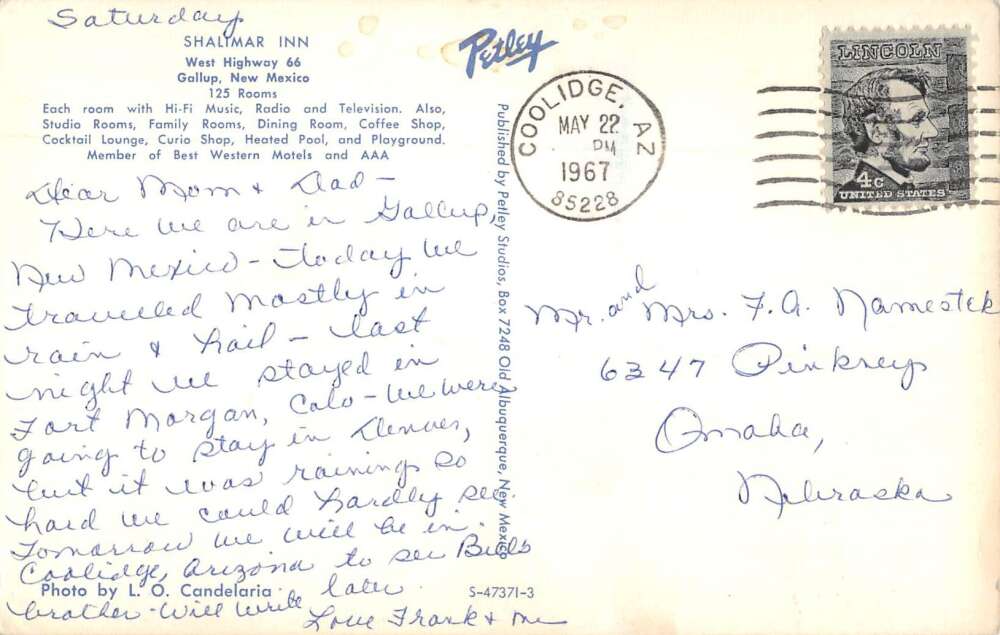 Saturday
SHALIMAR INN
West Highway 66
Gallup, New Mexico
125 Rooms
Each room with Hi-Fi Music, Radio and Television. Also,
Studio Rooms, Family Rooms, Dining Room, Coffee Shop,
Cocktail Lounge, Curio Shop, Heated Pool, and Playground.
Member of Best Western Motels and AAA
Dear Mom & Dad -
Here we are in Gallup,
New Mexico - Today we
travelled mostly in
rain & hail - last
night we stayed in
Fort Morgan, Colo - we were
going to stay in Denver,
but it was raining so
hard we could hardly see.
Tomorrow we will be in
Coolidge, Arizona to see Buds
brother - will write later
Love Frank & me
Photo by L. O. Candelaria
S-47371-3
Petley
Published by Petley Studios, Box 7248 Old Albuquerque, New Mexico
COOLIDGE, AZ
MAY 22
PM
1967
85228
LINCOLN
4c
UNITED STATES
Mr. and Mrs. F. A. Namestek
6347 Pinkney
Omaha,
Nebraska